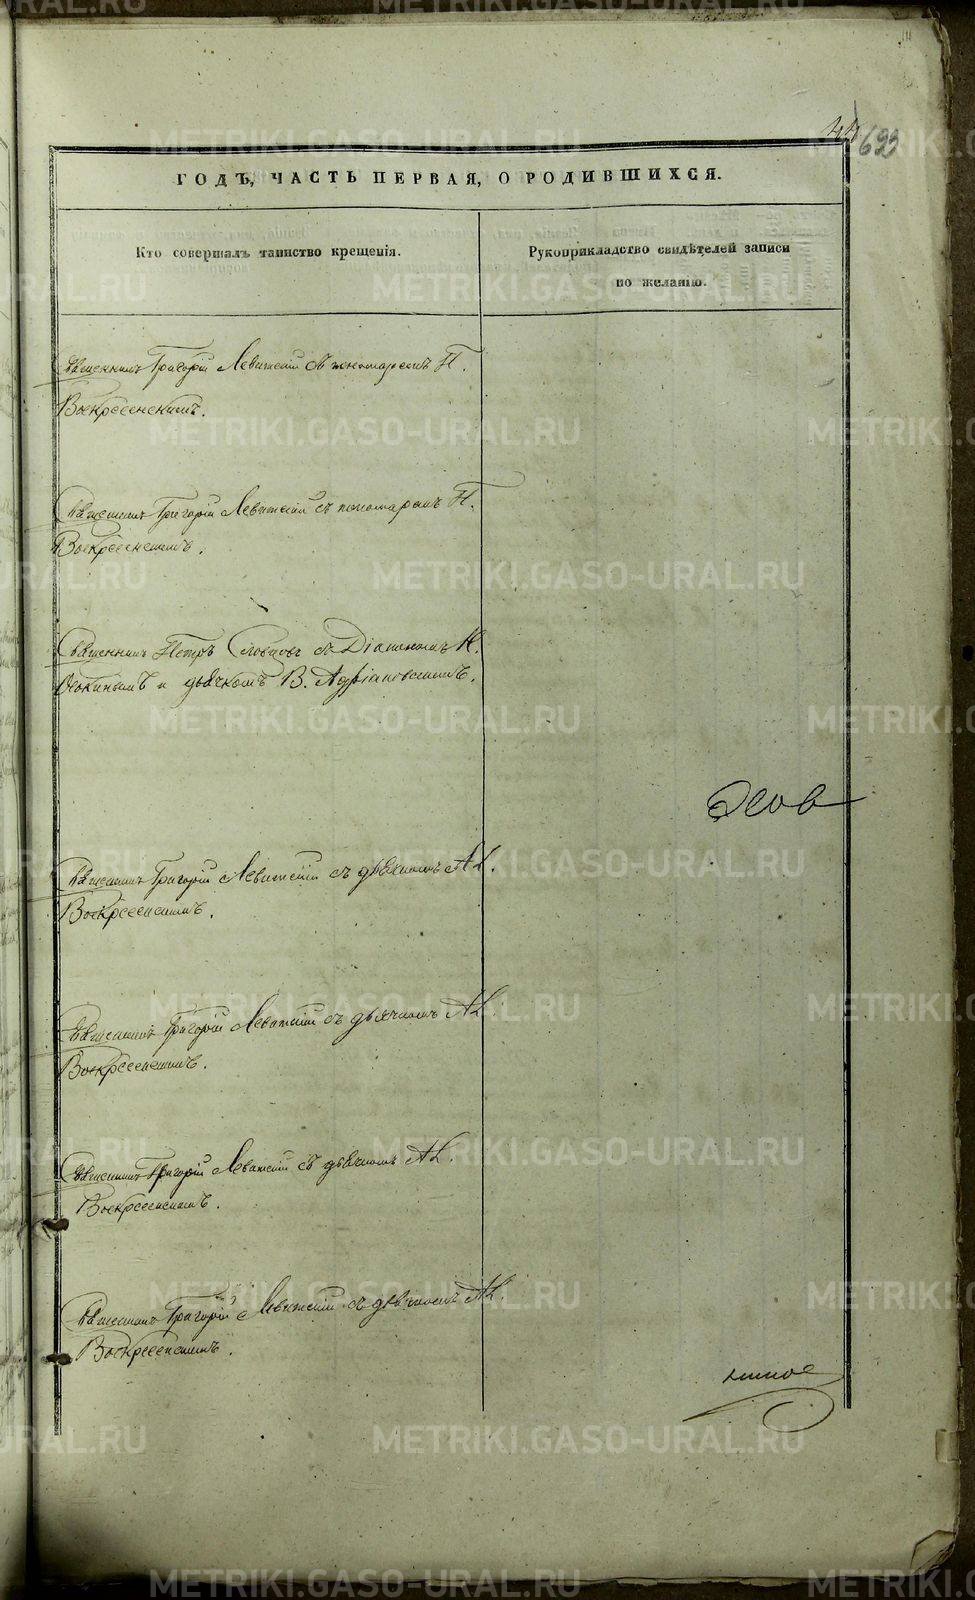 44
693
ГОДЪ, ЧАСТЬ ПЕРВАЯ, О РОДИВШИХСЯ.
Кто совершалъ таинство крещенія.
Рукоприкладство свидѣтелей записи
по желанію.
Священникъ Григорій Левитскій съ пономаремъ П.
Воскресенскимъ.
Священникъ Григорій Левитскій съ пономаремъ П.
Воскресенскимъ.
Священникъ Петръ Словцовъ съ Діакономъ Н.
и дьячкомъ В. Адріановскимъ.
Священникъ Григорій Левитскій съ дьячкомъ Ал.
Воскресенскимъ.
Священникъ Григорій Левитскій съ дьячкомъ Ал.
Воскресенскимъ.
Священникъ Григорій Левитскій съ дьячкомъ Ал.
Воскресенскимъ.
Священникъ Григорій Левитскій съ дьячкомъ Ал.
Воскресенскимъ.
METRIKI.GASO-URAL.RU